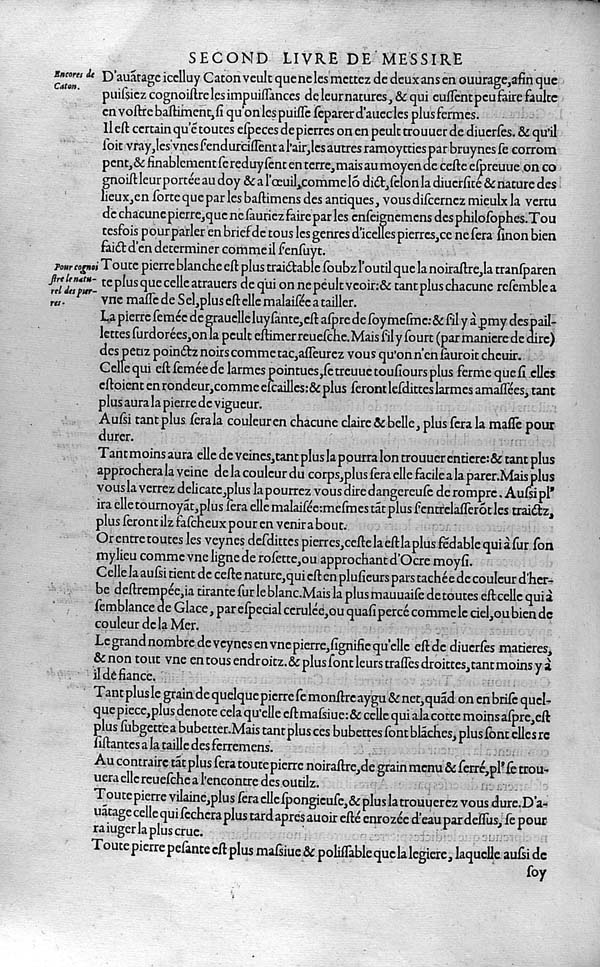 SECOND LIVRE DE MESSIRE
Encores de
Caton.
D'auãtage icelluy Caton veult que ne les mettez de deux ans en ouurage, afin que
puiſsiez cognoiſtre les impuiſſances de leur natures, & qui euſſent peu faire faulte
en voſtre baſtiment, ſi qu'on les puiſſe ſeparer d'auec les plus fermes.
Il eſt certain qu'ẽ toutes eſpeces de pierres on en peult trouuer de diuerſes. & qu'il
ſoit vray, les vnes ſendurciſſent a l'air, les autres ramoytties par bruynes ſe corrom
pent, & finablement ſe reduyſent en terre, mais au moyen de ceſte eſpreuue on co
gnoiſt leur portée au doy & a l'œuil, comme lõ dict, ſelon la diuerſité & nature des
lieux, en ſorte que par les baſtimens des antiques, vous diſcernez mieulx la vertu
de chacune pierre, que ne ſauriez faire par les enſeignemens des philoſophes. Tou
tesfois pour parler en brief de tous les genres d'icelles pierres, ce ne ſera ſinon bien
faict d'en determiner comme il ſenſuyt.
Pour cognoi
ſtre le natu-
rel des pier-
res.
Toute pierre blanche eſt plus traictable ſoubz l'outil que la noiraſtre, la tranſparen
te plus que celle atrauers de qui on ne peult veoir: & tant plus chacune reſemble a
vne maſſe de Sel, plus eſt elle malaiſée a tailler.
La pierre ſemée de grauelle luyſante, eſt aſpre de ſoymeſme: & ſil y à ꝑmy des pail-
lettes ſurdorées, on la peult eſtimer reueſche. Mais ſil y ſourt (par maniere de dire)
des petiz poinctz noirs comme tac, aſſeurez vous qu'on n'en ſauroit cheuir.
Celle qui eſt ſemée de larmes pointues, ſe treuue touſiours plus ferme que ſi elles
eſtoient en rondeur, comme eſcailles: & plus ſeront leſdittes larmes amaſſées, tant
plus aura la pierre de vigueur.
Auſsi tant plus ſera la couleur en chacune claire & belle, plus ſera la maſſe pour
durer.
Tant moins aura elle de veines, tant plus la pourra lon trouuer entiere: & tant plus
approchera la veine de la couleur du corps, plus ſera elle facile a la parer. Mais plus
vous la verrez delicate, plus la pourrez vous dire dangereuſe de rompre. Auſsi plꝰ
ira elle tournoyãt, plus ſera elle malaiſée: meſmes tãt plus ſentrelaſſerõt les traictz,
plus ſeront ilz faſcheux pour en venir a bout.
Or entre toutes les veynes deſdittes pierres, ceſte la eſt la plus fẽdable qui à ſur ſon
mylieu comme vne ligne de roſette, ou approchant d'Ocre moyſi.
Celle la auſsi tient de ceſte nature, qui eſt en pluſieurs pars tachée de couleur d'her-
be deſtrempée, ia tirante ſur le blanc. Mais la plus mauuaiſe de toutes eſt celle qui à
ſemblance de Glace, par eſpecial cerulée, ou quaſi percé comme le ciel, ou bien de
couleur de la Mer.
Le grand nombre de veynes en vne pierre, ſignifie qu'elle eſt de diuerſes matieres,
& non tout vne en tous endroitz. & plus ſont leurs traſſes droittes, tant moins y à
il de fiance.
Tant plus le grain de quelque pierre ſe monſtre aygu & net, quãd on en briſe quel-
que piece, plus denote cela qu'elle eſt maſsiue: & celle qui a la cotte moins aſpre, eſt
plus ſubgette a bubetter. Mais tant plus ces bubettes ſont blãches, plus ſont elles re
ſiſtantes a la taille des ferremens.
Au contraire tãt plus ſera toute pierre noiraſtre, de grain menu & ſerré, plꝰ ſe trou-
uera elle reueſche a l'encontre des outilz.
Toute pierre vilaine, plus ſera elle ſpongieuſe, & plus la trouuerez vous dure. D'a-
uãtage celle qui ſechera plus tard apres auoir eſté enrozée d'eau par deſſus, ſe pour
ra iuger la plus crue.
Toute pierre peſante eſt plus maſsiue & poliſſable que la legiere, laquelle auſsi de
ſoy